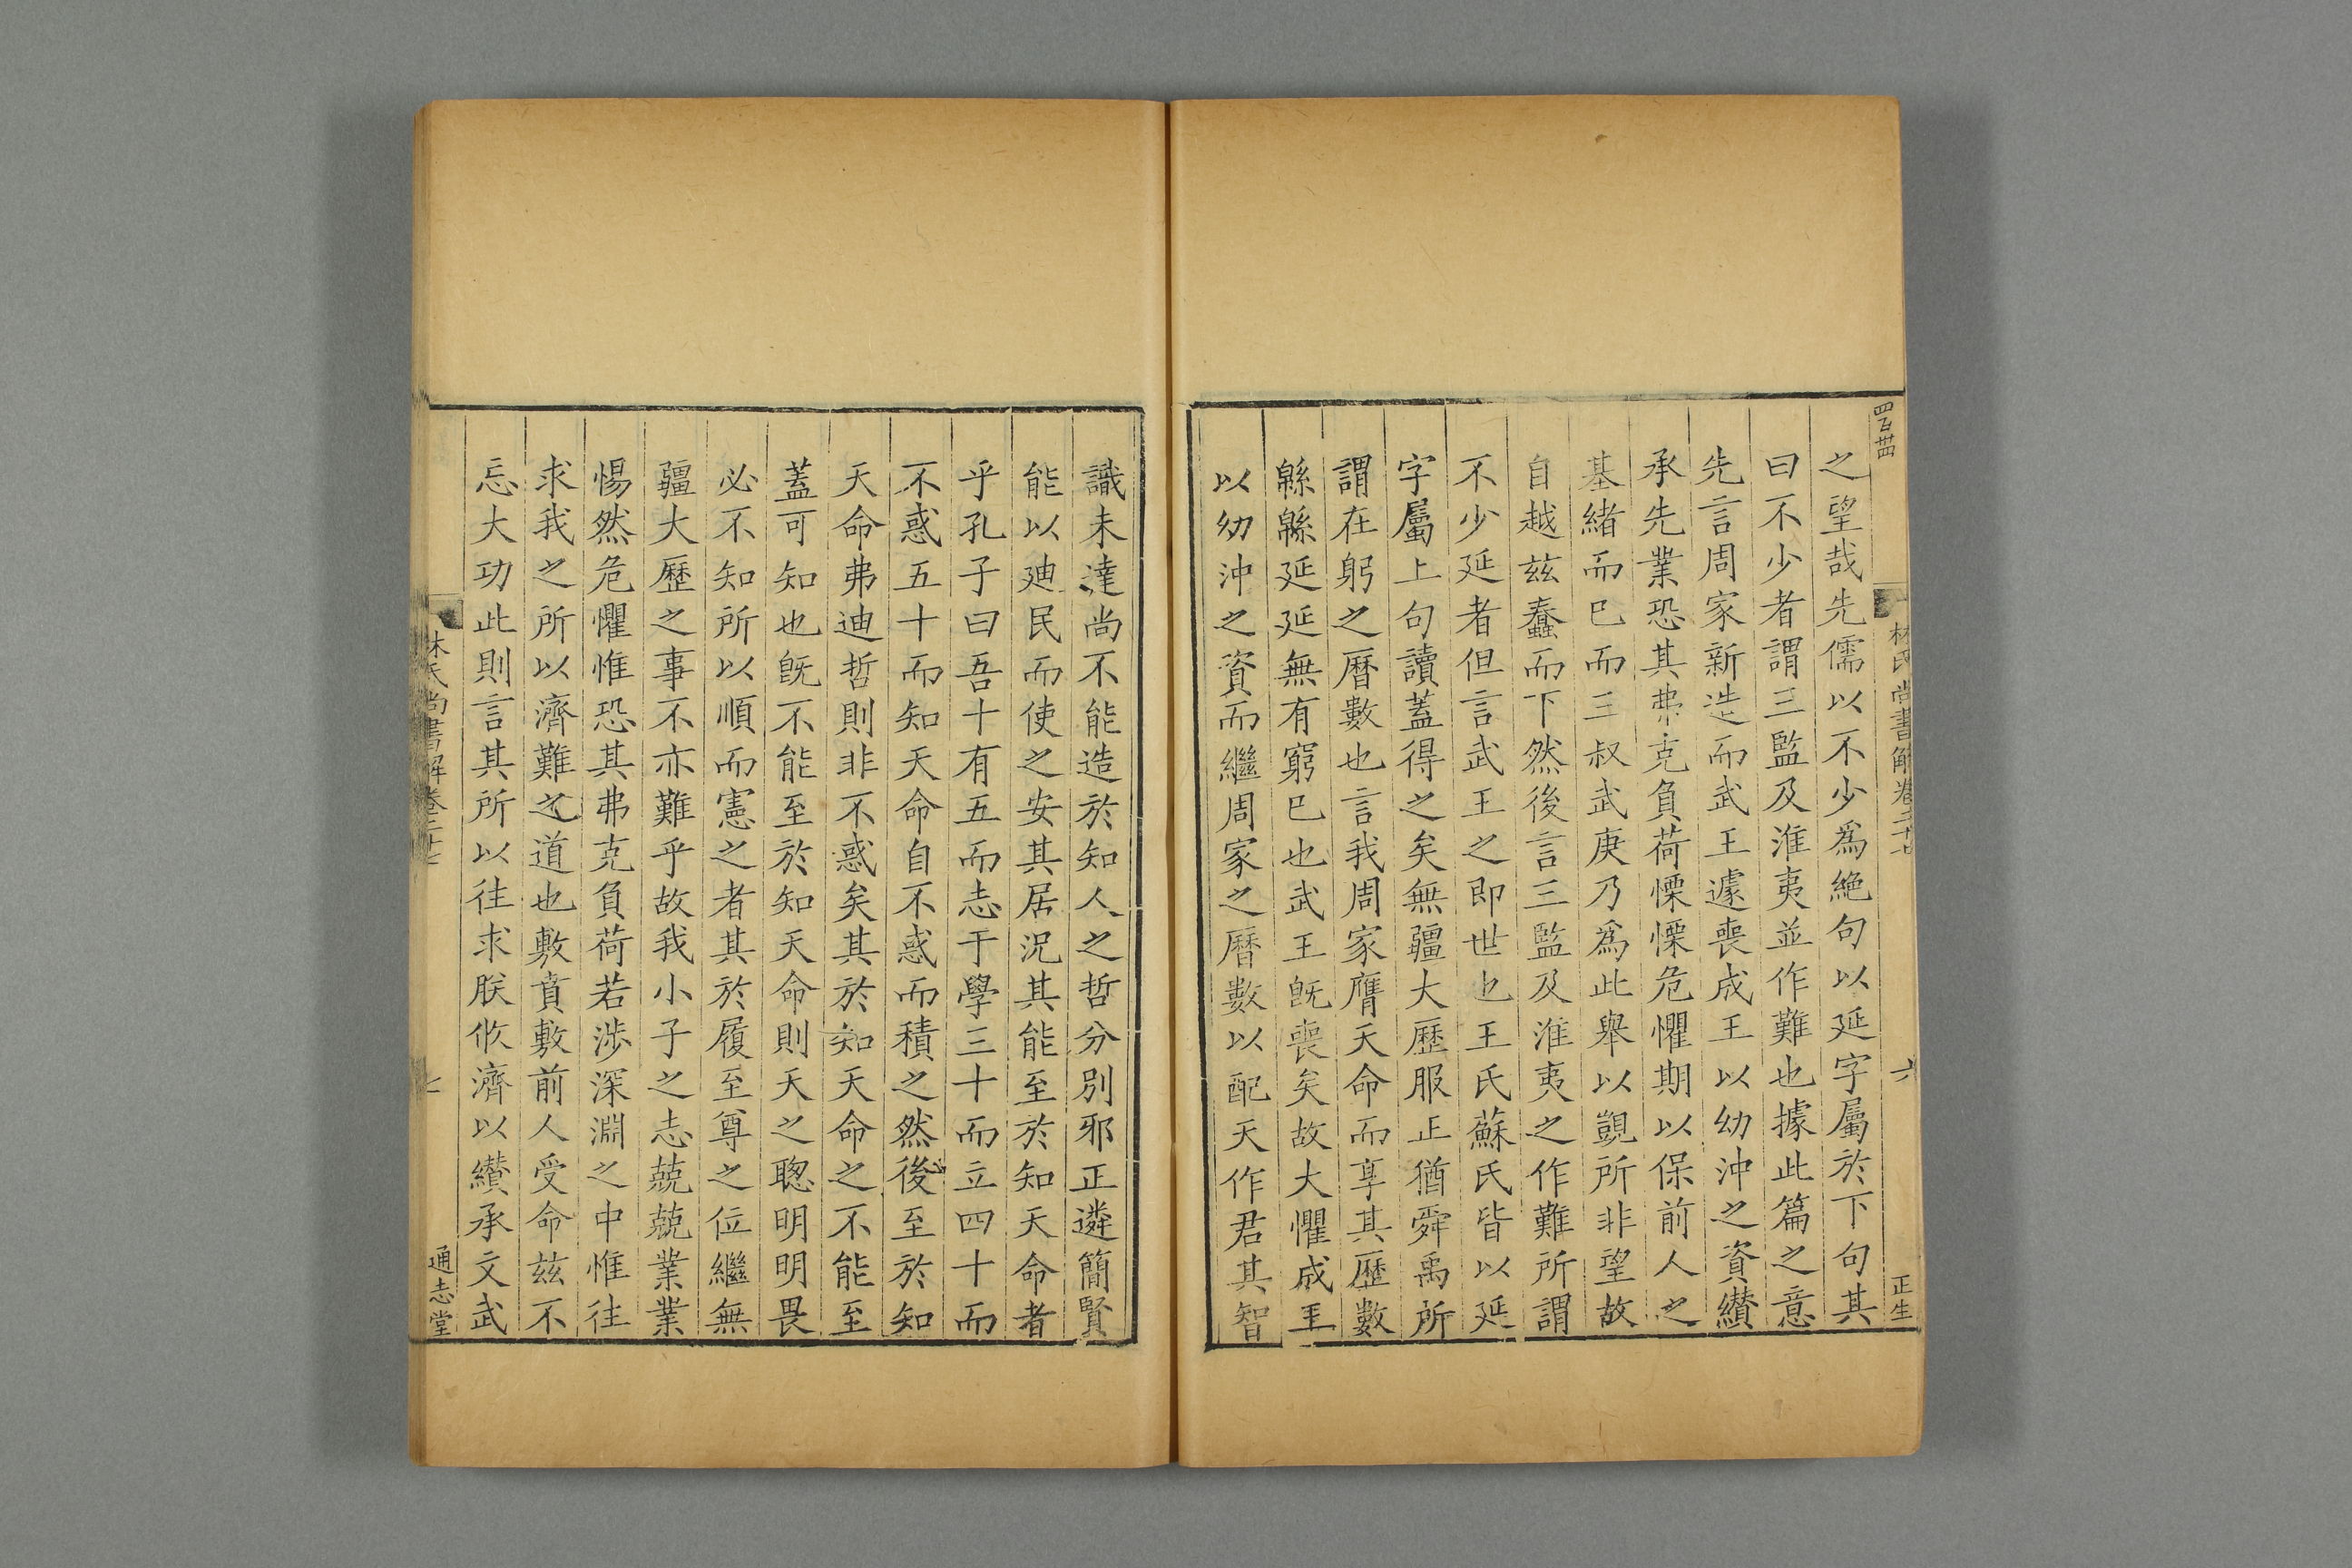 之望哉先儒以不少為絶句以延字屬於下句其
曰不少者謂三監及淮夷並作難也據此篇之意
先言周家新造而武王遽喪成王以幼沖之資纉
承先業恐其弗克負荷慄慄危懼期以保前人之
基緒而巳而三叔武庚乃為此舉以覬所非望故
自越茲蠢而下然後言三監及淮夷之作難所謂
不少延者但言武王之即世也王氏蘇氏皆以延
字屬上句讀蓋得之矣無疆大歷服正猶舜禹所
謂在躬之曆數也言我周家膺天命而享其歷數
緜緜延延無有窮巳也武王旣喪矣故大懼成王
以幼沖之資而繼周家之曆數以配天作君其智
林氏尚書解卷二十七
六
正生
識未達尚不能造於知人之哲分別邪正遴簡賢
能以廸民而使之安其居況其能至於知天命者
乎孔子曰吾十有五而志于學三十而立四十而
不惑五十而知天命自不惑而積之然後至於知
天命弗迪哲則非不惑矣其於知天命之不能至
蓋可知也旣不能至於知天命則天之聦明明畏
必不知所以順而憲之者其於履至尊之位繼無
疆大歷之事不亦難乎故我小子之志兢兢業業
惕然危懼惟恐其弗克負荷若渉深淵之中惟往
求我之所以濟難之道也敷賁敷前人受命茲不
忘大功此則言其所以往求朕攸濟以纉承文武
林氏尚書解卷二十七
七
通志堂